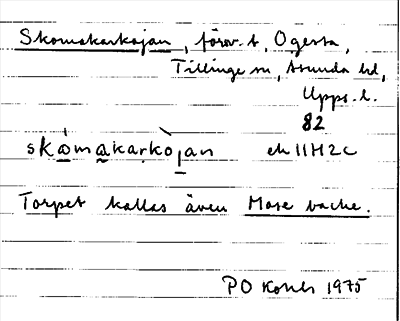 Skomakarkojan, förr. t. Ogesta,
Tillinge sn, Åsunda hd,
Upps. l.
82
skòmakarkòjan ek 11H2c
Torpet kallas även Mose backe.
P O 1975